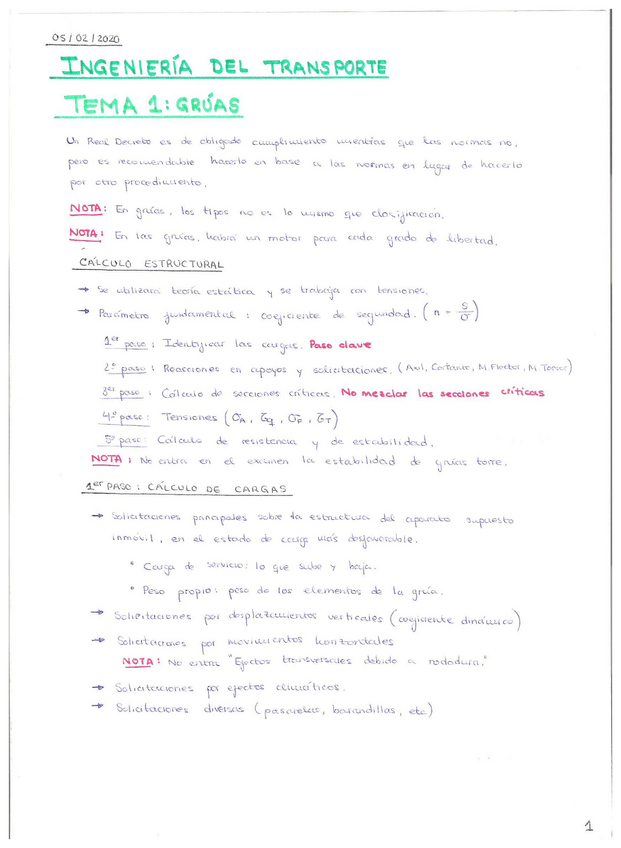 05/02/2020
INGENIERÍA DEL TRANSPORTE
TEMA 1: GRÚAS
Un Real Decreto es de obligado cumplimiento mientras que las normas no,
pero es recomendable hacerlo en base a las normas en lugar de hacerlo
por otro procedimiento.
NOTA: En grúas, los tipos no es lo mismo que clasificación.
NOTA: En las grúas, habrá un motor para cada grado de libertad.
CÁLCULO ESTRUCTURAL
→ Se utilizará teoría estática y se trabaja con tensiones.
→ Parámetro fundamental: coeficiente de seguridad. (n = S/σ)
1er paso: Identificar las cargas. Paso clave
2º paso: Reacciones en apoyos y solicitaciones. (Axil, Cortante, M.Flector, M.Torsor)
3er paso: Cálculo de secciones críticas. No mezclar las secciones críticas
4º paso: Tensiones (σA, ζq, σF, ζT)
5º paso: Cálculo de resistencia y de estabilidad.
NOTA: No entra en el examen la estabilidad de grúas torre.
1er PASO: CÁLCULO DE CARGAS
→ Solicitaciones principales sobre la estructura del aparato supuesto
inmóvil, en el estado de carga más desfavorable.
* Carga de servicio: lo que sube y baja.
* Peso propio: peso de los elementos de la grúa.
→ Solicitaciones por desplazamientos verticales (coeficiente dinámico)
→ Solicitaciones por movimientos horizontales
NOTA: No entra "Efectos transversales debido a rodadura."
→ Solicitaciones por efectos climáticos.
→ Solicitaciones diversas (pasarelas, barandillas, etc)
1